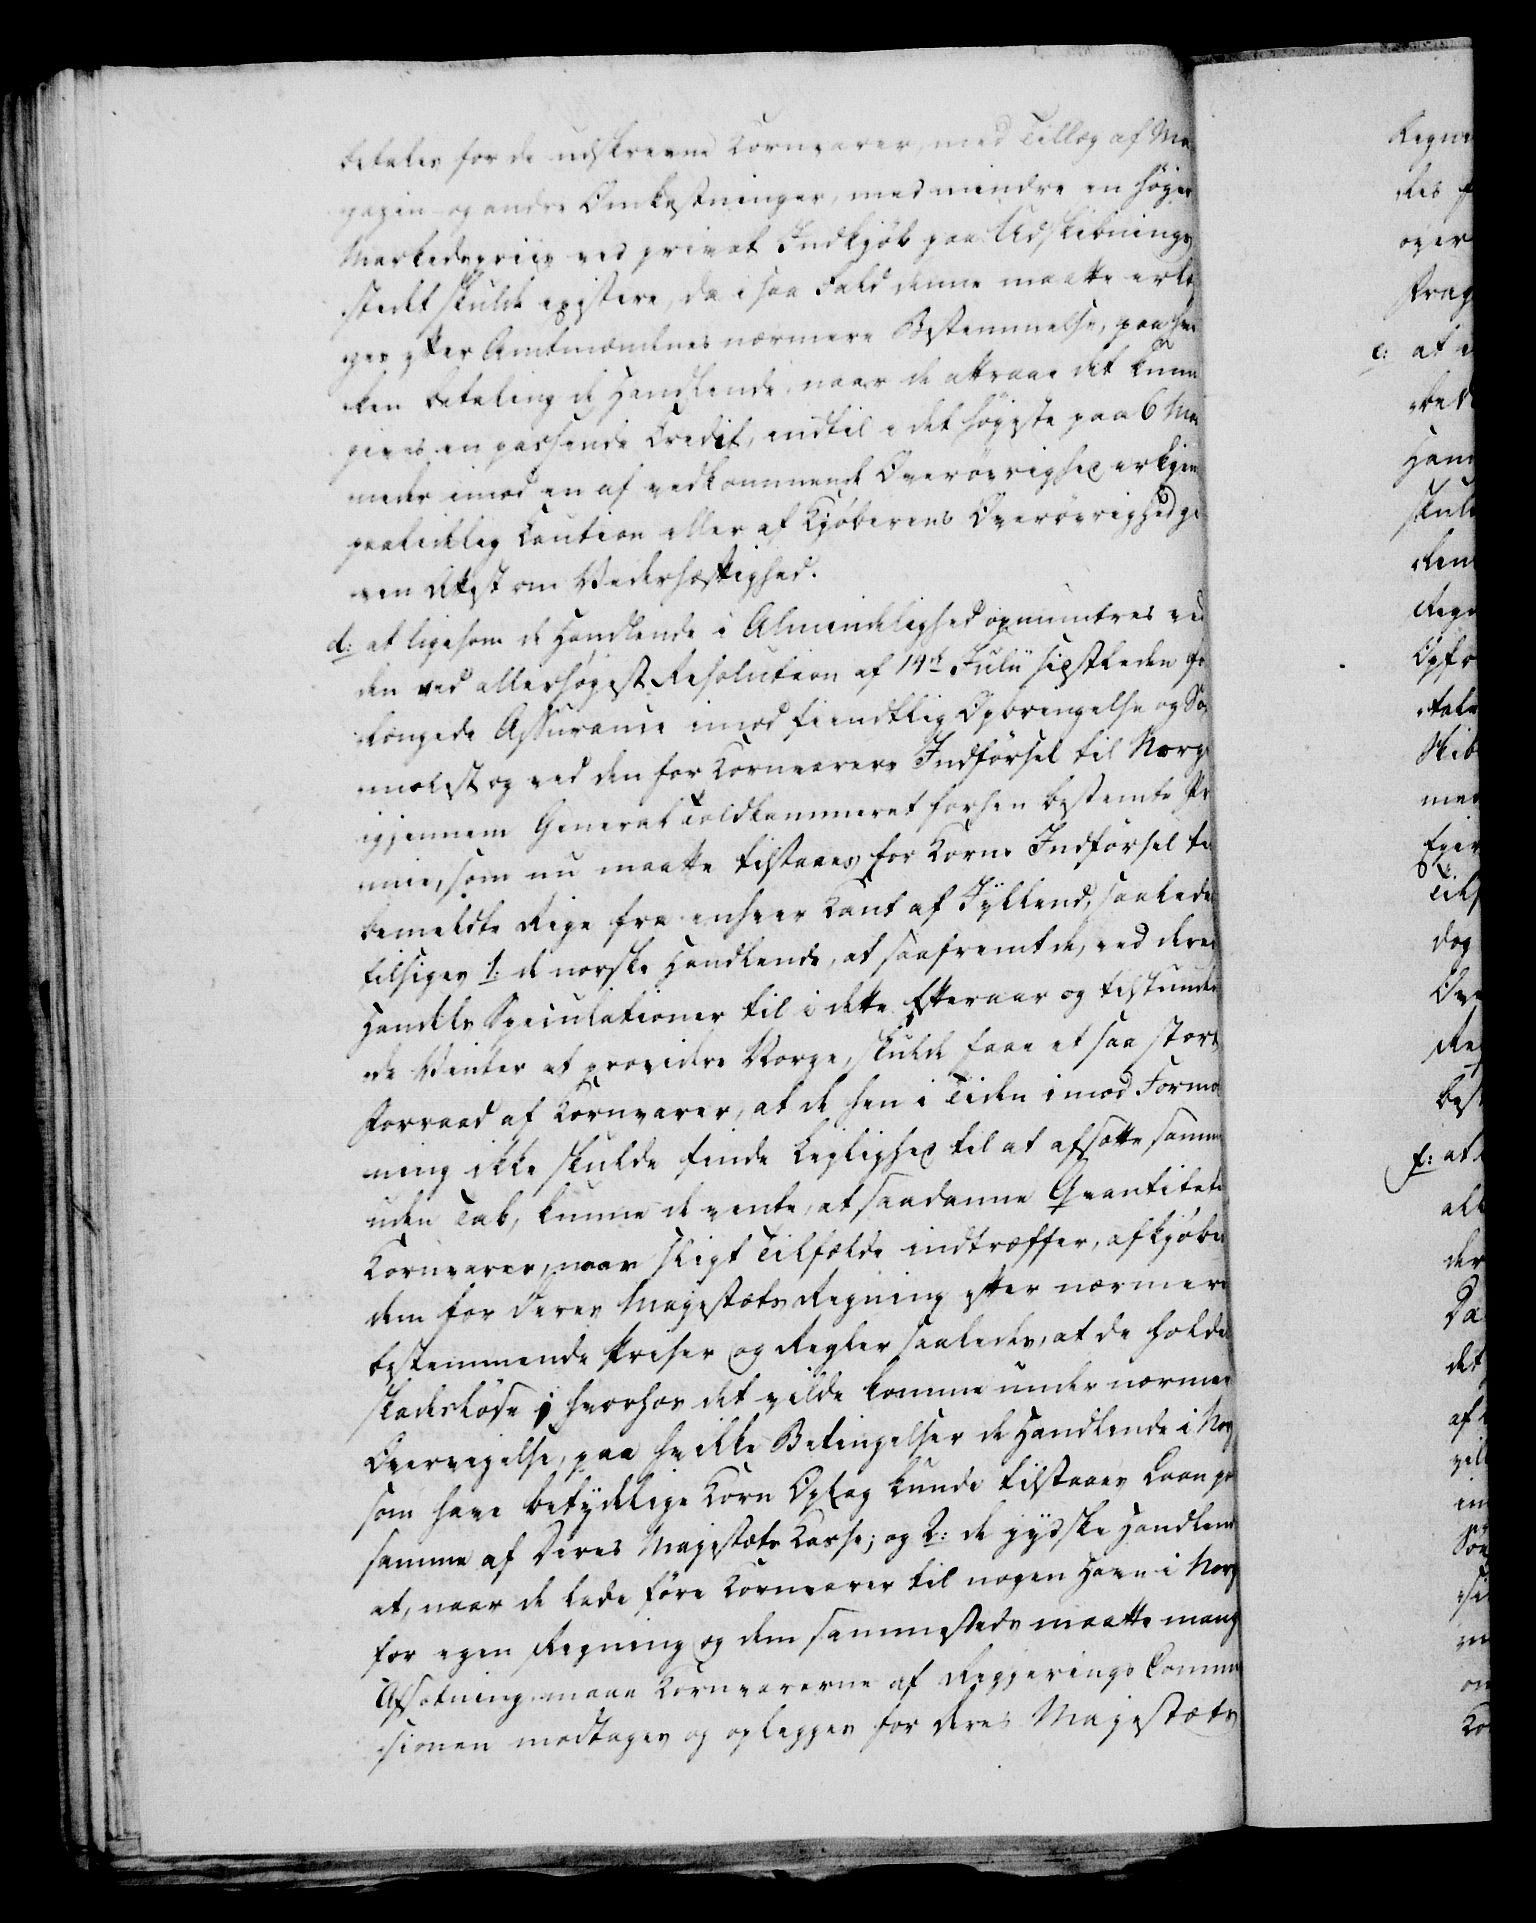 betales for de udskrevne Kornvarer, med Tillæg af Ma
gazin- og andre Omkostninger, med mindre en høiere
Markedspriis ved privat Indkjøb paa Udskibnings
stedet skulde existere, da i saa Fald denne maatte erlæg
ges efter Amtmændenes nærmere Bestemmelse, paa hvil
ken Betaling de Handlende, naar de attraae det kunne
gives en passende Credit, indtil i det høyeste paa 6 Maa
neder imod en af vedkommende Overøvrighed erkjen
paalidelig Caution eller af Kjøberens Overøvrighed gi
ven Attest om Vederhæftighed.
d: at ligesom de Handlende i Almindelighed opmuntres ved
den ved allerhøyest Resolution af 14de Julii sidstleden for
længede Assurance imod fiendtlig Opbringelse og Sø
molest og ved den for Kornvarers Indførsel til Norge
igjennem General Toldkammeret forhen bestemte Præ
mie, som nu maatte tilstaaes for Korns Indførsel til
bemeldte Rige fra enhver Kant af Jylland, saaledes
tilsiges 1: de norske Handlende, at saafremt de, ved deres
Handels Speculationer til i dette Efteraar og tilstunden
de Vinter at providere Norge, skulde faae et saa stort
Forraad af Kornvarer, at de hen i Tiden imod Formod
ning ikke skulde finde Leylighed til at afsætte samme
uden Tab, kunne de vente, at saadanne Quantiteter
Kornvarer, naar sligt Tilfælde indtræffer, afkjøbes
dem for Deres Majestæts Regning efter nærmere
bestemmende Priser og Regler saaledes, at de holdes
skadesløse; hvorhos det vilde komme under nærmere
Overveyelse, paa hvilke Betingelser de Handlende i Norge
som have betydelige Korn Oplag kunde tilstaaes Laan paa
samme af Deres Majestæts Kasse; og 2: de jydske Handlende
at, naar de lade føre Kornvarer til nogen Havn i Norge
for egen Regning og dem sammesteds maatte mangle
Afsætning, maae Kornvarerne af Regjerings Commis
sionen modtages og oplægges for Deres Majestæts